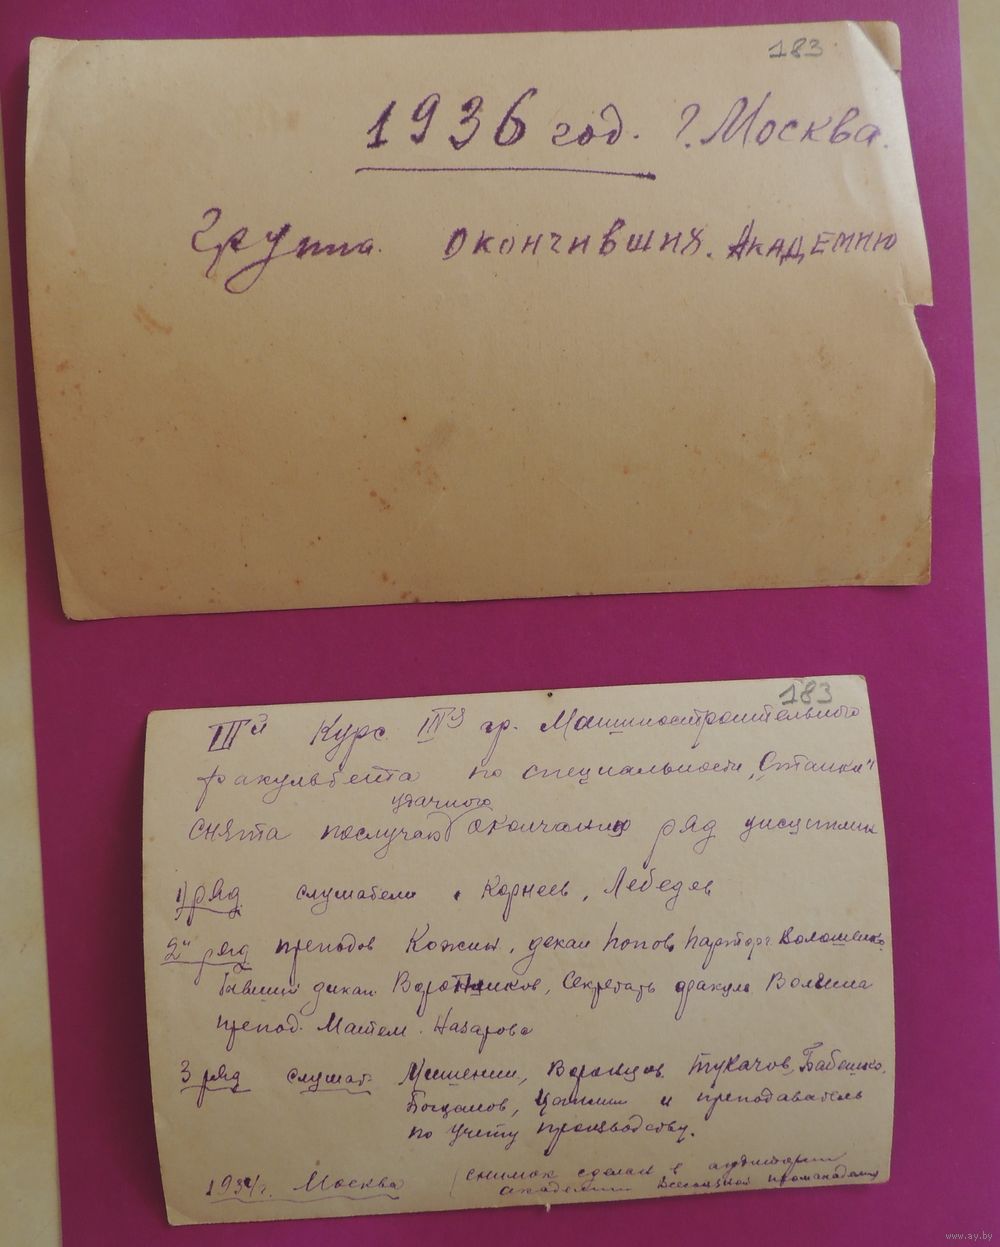 183
1936 год. г. Москва.
Группа. окончивших. Академию
183
IIIй Курс IIIя гр. Машиностроительного
факультета по специальности "Станки"
удачного
снята послучаю окончания ряд дисциплин
1) ряд слушатели. Корнеев, Лебедев
2й ряд преподов Кожин, декан Попов, парторг. Волошенко,
бывший декан Воротников, Секретарь факул. Волгина
препод. Матем. Назарова
3 ряд слушат. Мишенин, Воронцов, Тукачов, Бабешко,
Богданов, и преподаватель
по учету производству.
1934 г. Москва (снимок сделан в аудитории
академии Всесоюзной промакадемия
www.ay.by